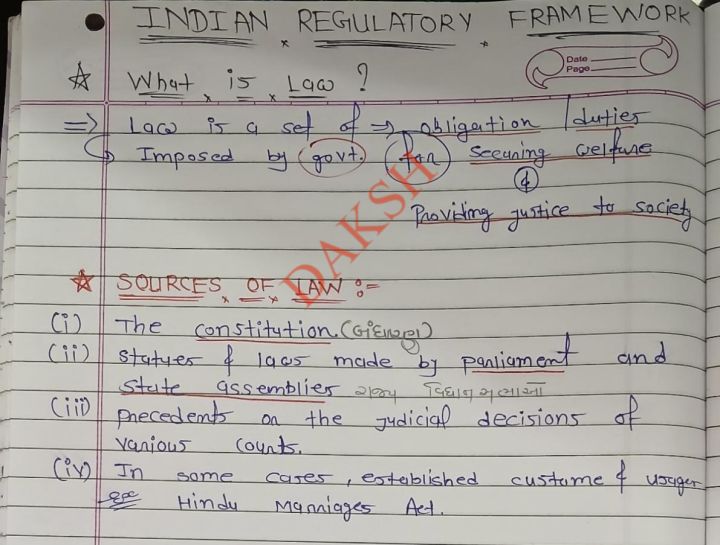 INDIAN REGULATORY FRAMEWORK
Date
Page
☆ What is Law ?
⇒ Law is a set of ⇒ obligation / duties
Imposed by govt. for securing welfare
&
Providing justice to society
DAKSH
☆ SOURCES OF LAW :-
(i) The constitution. (બંધારણ)
(ii) Statues & laws made by parliament and
state assemblies રાજ્ય વિધાનસભાઓ
(iii) precedents or the judicial decisions of
various courts.
(iv) In some cases, established custome & usages
Hindu Marriages Act.